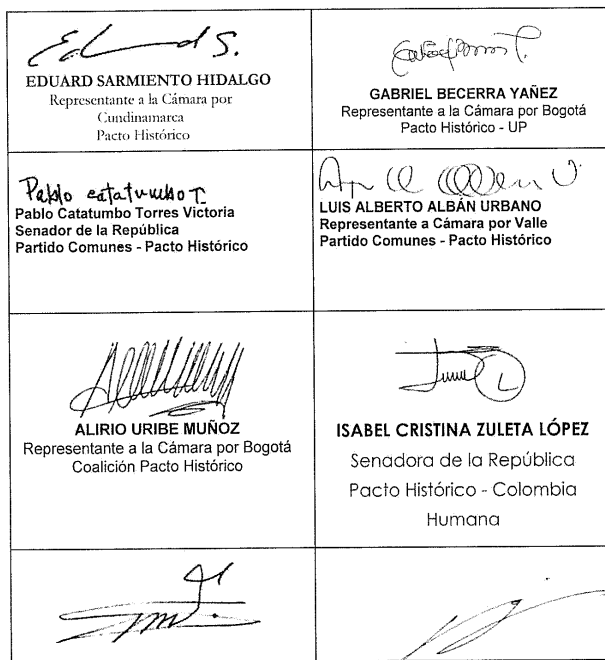 EDUARD SARMIENTO HIDALGO
Representante a la Cámara por
Cundinamarca
Pacto Histórico
GABRIEL BECERRA YAÑEZ
Representante a la Cámara por Bogotá
Pacto Histórico - UP
Pablo catatumbo T
Pablo Catatumbo Torres Victoria
Senador de la República
Partido Comunes - Pacto Histórico
LUIS ALBERTO ALBÁN URBANO
Representante a Cámara por Valle
Partido Comunes - Pacto Histórico
ALIRIO URIBE MUÑOZ
Representante a la Cámara por Bogotá
Coalición Pacto Histórico
ISABEL CRISTINA ZULETA LÓPEZ
Senadora de la República
Pacto Histórico - Colombia
Humana